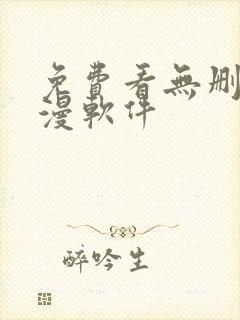 免費看無刪
漫軟件
醉吟生